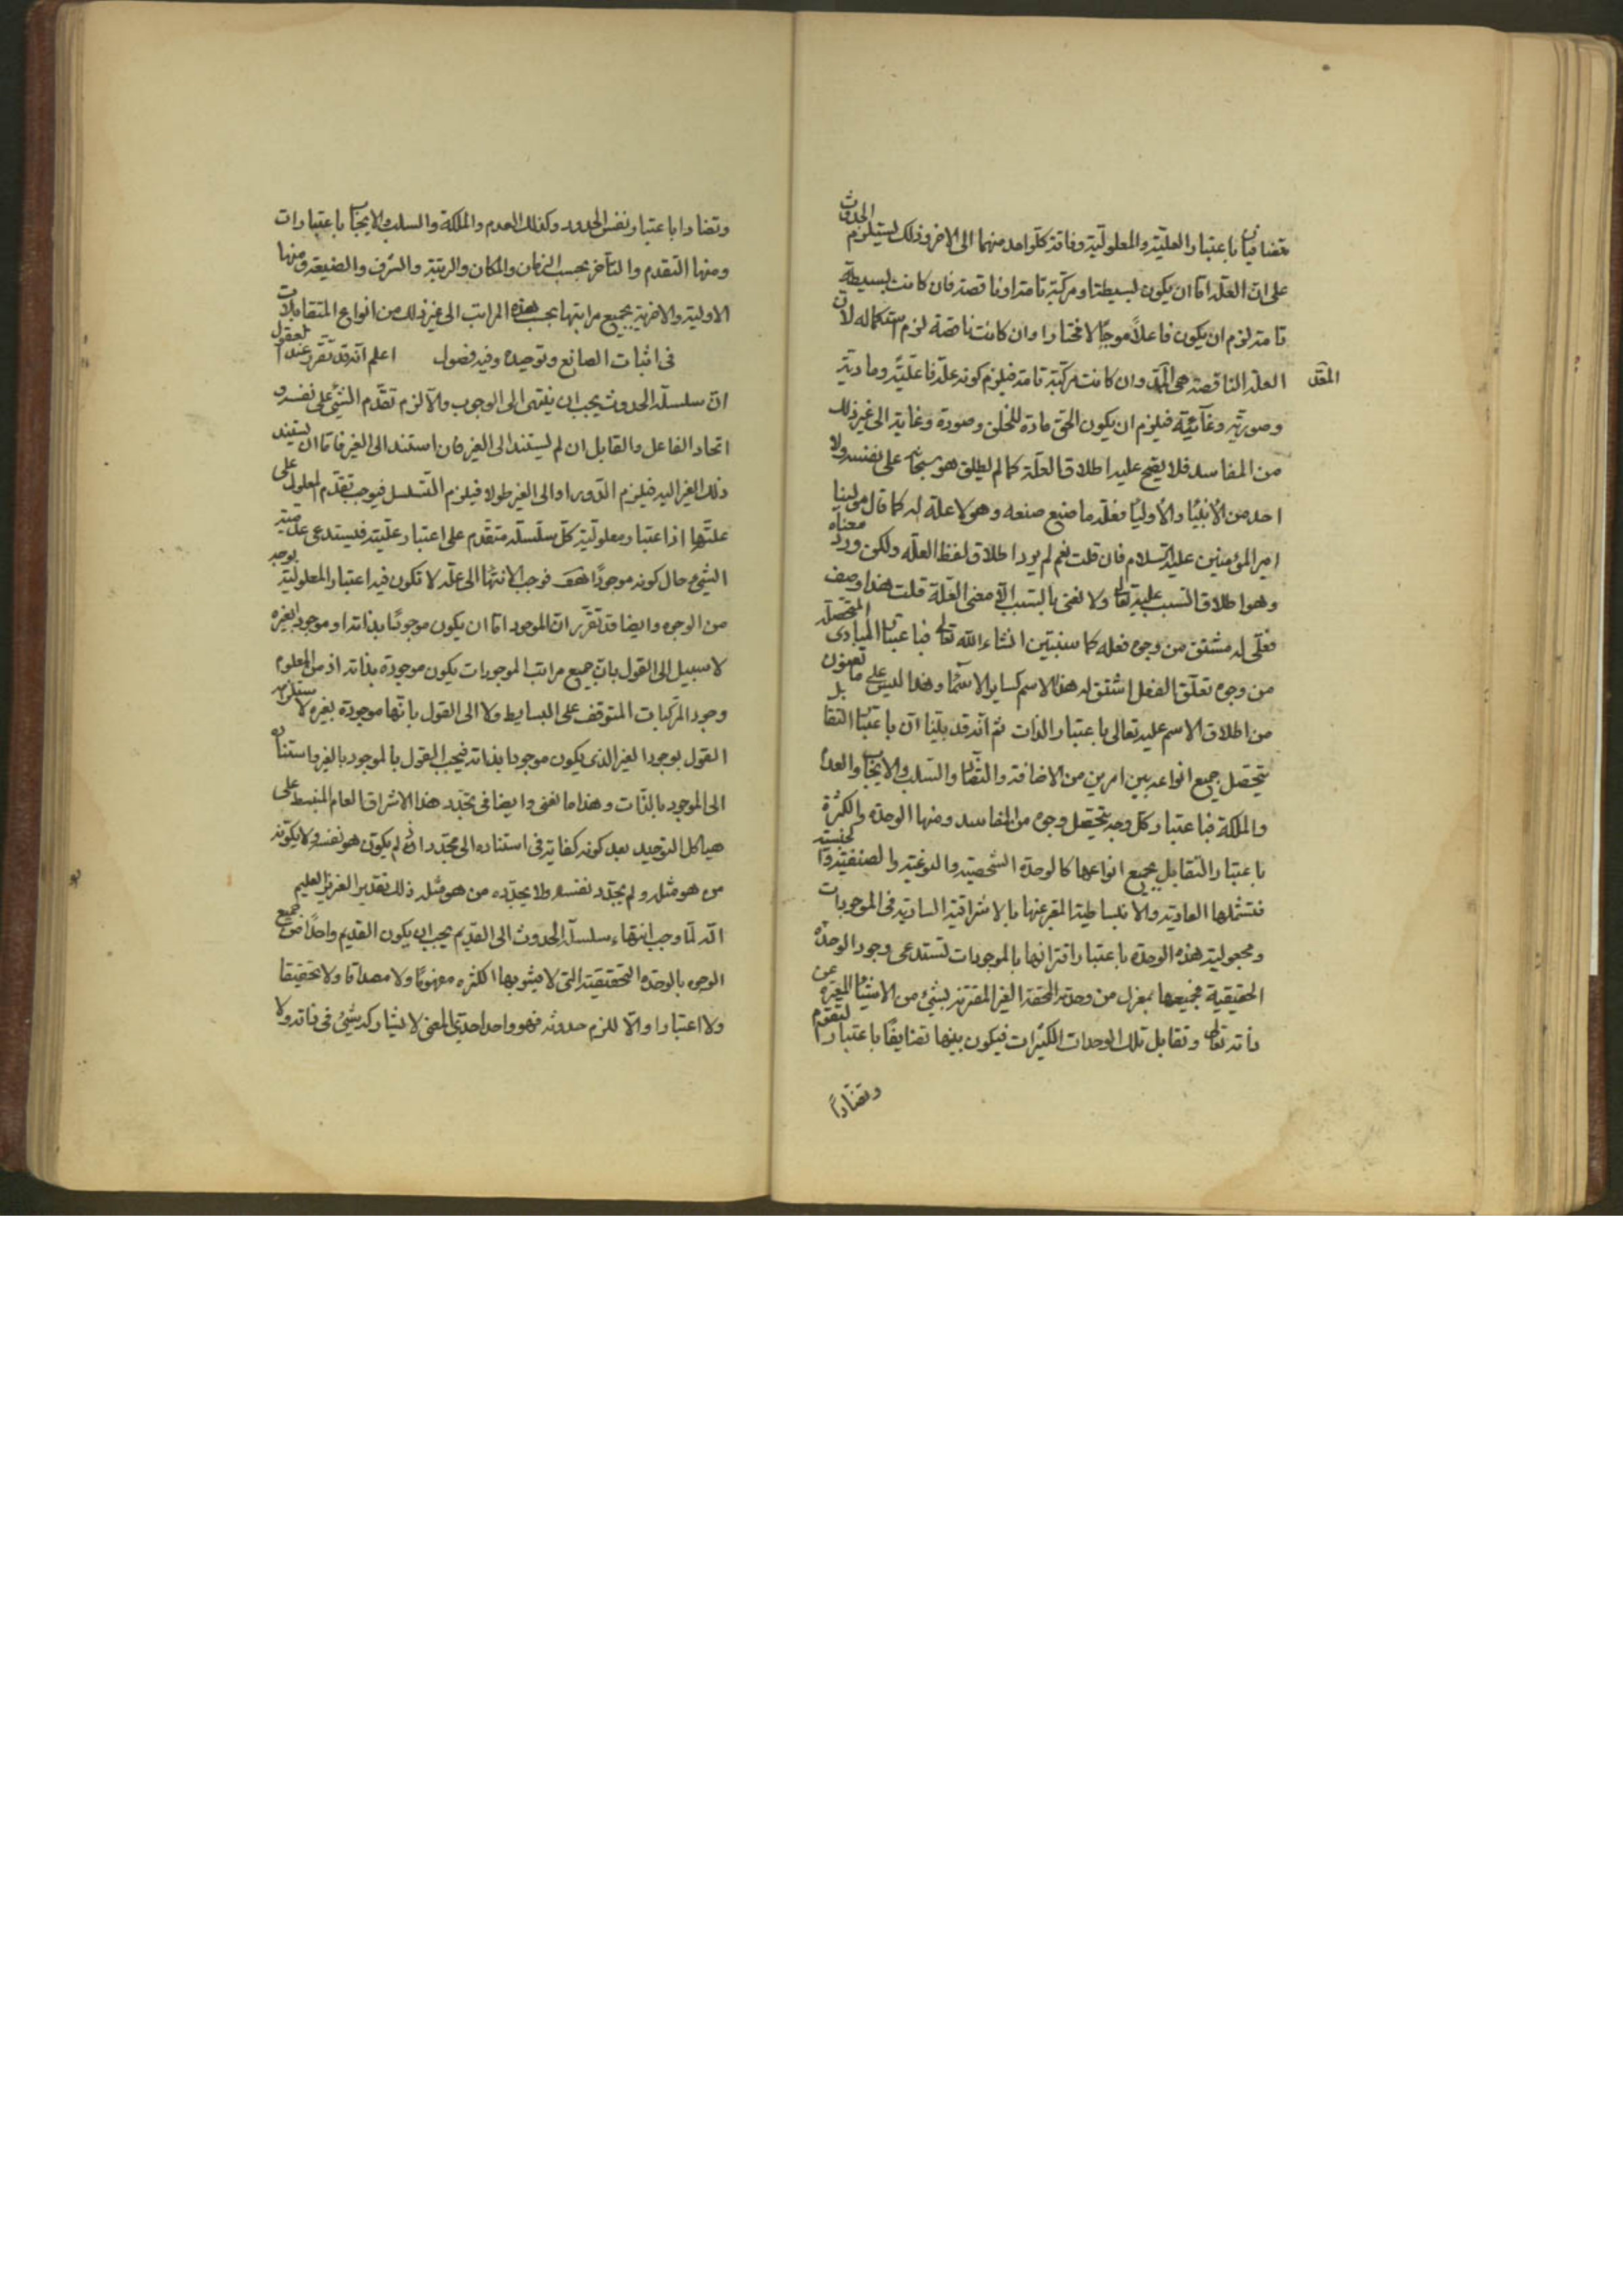 متضايفان باعتبار العلّية والمعلوليّة وفاقة كلّ واحد منهما الى الاخر وذلك يستلزم الحدوث
على انّ العلّة امّا ان يكون بسيطة او مركبة تامة او ناقصة فان كانت بسيطة
تامة لزم ان يكون فاعلاً موجبًا لا مختارا وان كانت ناقصة لزم استكماله لانّ
العلّة الناقصة هي وان كانت مركبة تامة فيلزم كونه علّة فاعليّة وماديّة
وصوريّة وغائيّة فيلزم ان يكون الحق مادة للخلق وصورة وغاية الى غير ذلك
من المفاسد فلا يصح عليه اطلاق العلّة كما لم يطلق هو سبحانه على نفسه ولا
احد من الأنبياء والأولياء فعلّة ما صنع صنعه وهو لا علة له كما قال مولينا
امير المؤمنين عليه السلام فان قلت نعم لم يرد اطلاق لفظ العلّه ولكن ورد معناه
وهو اطلاق السبب عليه تعالى ولا نعنى بالسبب الّا معنى العلّة قلت هذا وصف
فعلّى له مشتق من وجوه فعله كما سنبيّن انشاء الله تعالى فباعتبار المبادى المتحصّلة
من وجوه تعلّق الفعل اشتق له هذا الاسم كساير الاسماء وهذا ليس على ما تعنون
من اطلاق الاسم عليه تعالى باعتبار الذات ثم انه قد بيّنا ان باعتبار التقابل
يتحصل جميع انواعه بين امرين من الاضافة والتضاد والسلب والايجاب والعدم
والملكة فباعتبار كل وجه يتحصل وجوه من المفاسد ومنها الوحدة والكثرة
باعتبار التقابل بجميع انواعها كالوحدة الشخصية والنوعية والصنفية والجنسية
فتشملها العادية والانبساطية المعبر عنها بالاشراقية السارية فى الموجودات
ومجعولية هذه الوحدة باعتبار اقترانها بالموجودات تستدعى وجود الوحدة
الحقيقية فجميعها بمعزل من وحدته الحقة الغير المقترنة بشئ من الاشياء المعبرة عن
ذاته تعالى وتقابل تلك الوحدات الكثرات فيكون بينها تضايفًا باعتبار التقوم
وتضادًا
وتضادا باعتبار نفس الحدود وكذلك العدم والملكة والسلب والايجاب باعتبارات
ومنها التقدم والتأخر بحسب الزمان والمكان والرتبة والشرف والطبيعة ومنها
الاولية والاخرية بجميع مراتبها بحسب هذه المراتب الى غير ذلك من انواع المتقابلات
فى اثبات الصانع وتوحيده وفيه فصول اعلم انه قد تقرر عند العقول
انّ سلسلة الحدوث يجب ان ينتهى الى الوجوب والّا لزم تقدّم الشئ على نفسه و
اتحاد الفاعل والقابل ان لم يستند الى الغير فان استند الى الغير فامّا ان يستند
ذلك الغير اليه فيلزم الدّور او الى الغير طولا فيلزم التسلسل فيوجب تقدّم المعلول على
علّتها اذ اعتبار معلوليّة كلّ سلسلة متقدّم على اعتبار علّيته فيستدعى علّية
الشئ حال كونه موجودًا هف فوجب الانتهاء الى علّة لا تكون فيه اعتبار المعلولية بوجه
من الوجوه وايضا قد تقرّر انّ الموجود امّا ان يكون موجودًا بذاته او موجودا بغيره
لا سبيل الى القول بانّ جميع مراتب الموجودات يكون موجودة بذاته اذ من المعلوم
وجود المركبات المتوقف على البسايط ولا الى القول بانّها موجودة بغيره لاستلزامه
القول بوجود الغير الذى يكون موجودا بذاته فيجب القول بالموجود بالغير واستناده
الى الموجود بالذّات وهذا ما نعنى وايضا فى تجدّد هذا الاشراق العام المنبسط على
هياكل التوحيد بعد كونه كفاية فى استناده الى مجدّد اذ لم يكوّن هو نفسه ولا يكوّنه
من هو مثله ولم يجدّد نفسه ولا يجدّده من هو مثله ذلك تقدير العزيز العليم
انّه لمّا وجب انتهاء سلسلة الحدوث الى القديم يجب ان يكون القديم واحدًا من جميع
الوجوه بالوحدة الحقيقية التى لا يشوبها الكثرة مفهومًا ولا مصداقا ولا تحقيقا
ولا اعتبارا والّا للزم حدوثه فهو واحد احدىّ المعنى لا يشاركه شئ فى ذاته ولا